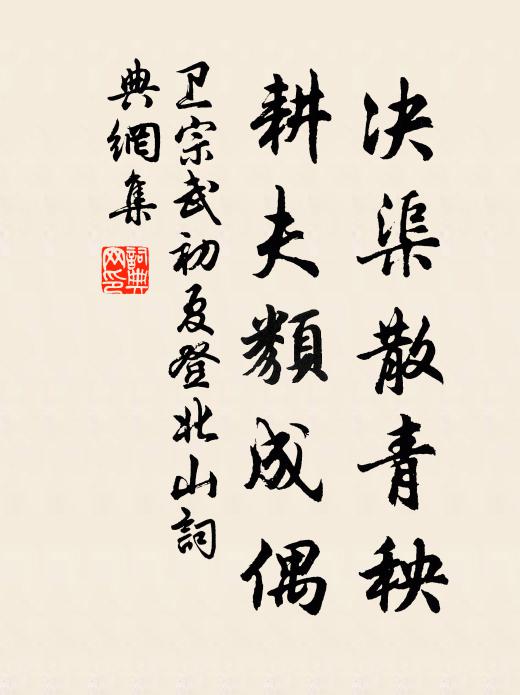 决渠散青秧
耕夫類成偶
卫宗武初夏登北山詞
典網集
詞典
网印